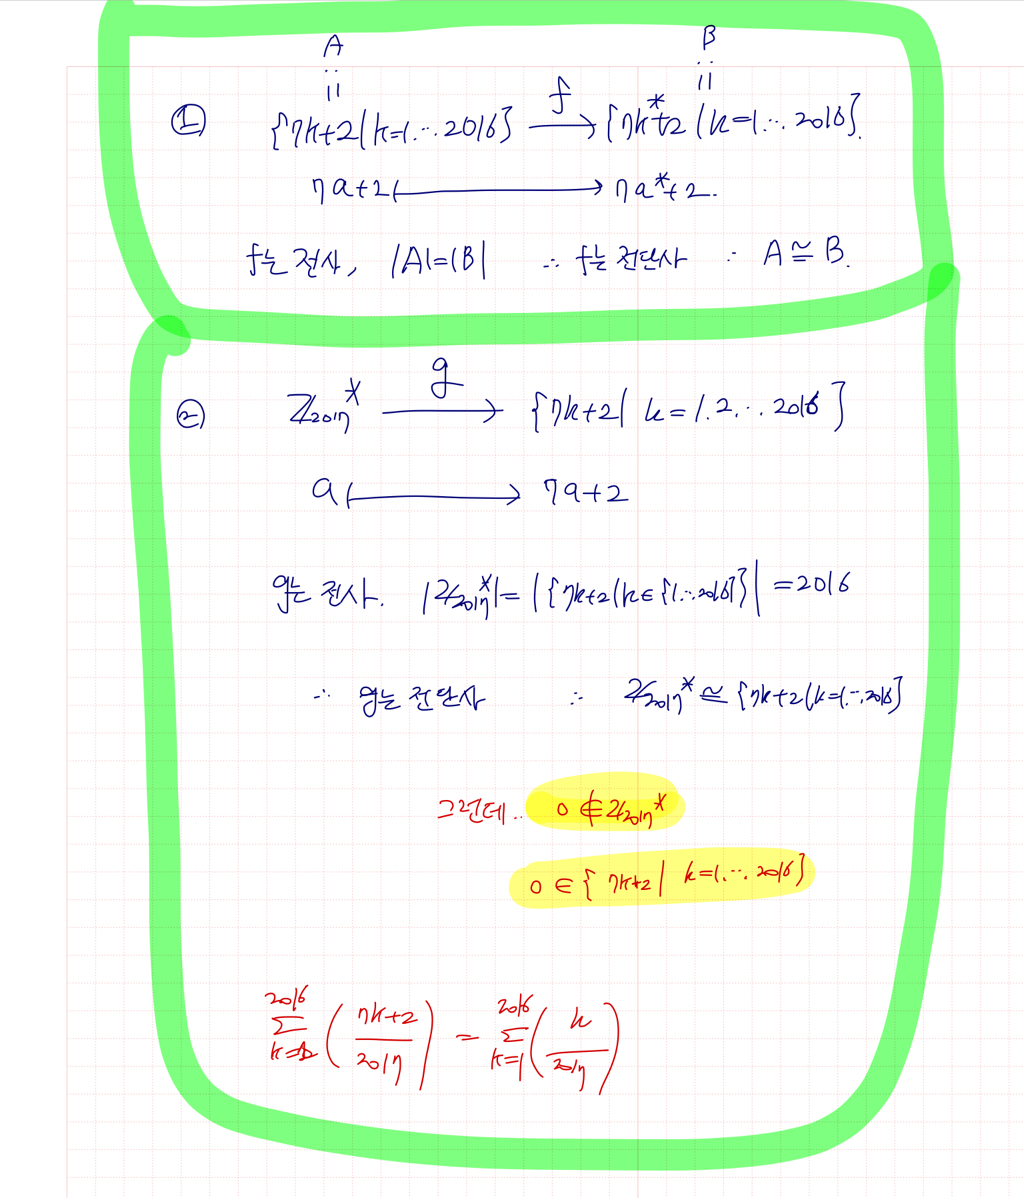 A B
① {7k+2|k=1,…2016} f→ {7k*+2|k=1,…2016}
7a+2 ↦ 7a*+2.
f는 전사, |A|=|B| ∴ f는 전단사 ∴ A≅B.
② Z₂₀₁₇* g→ {7k+2| k=1,2,…2016}
a ↦ 7a+2
g는 전사. |Z₂₀₁₇*|=|{7k+2|k∈{1,…2016}}|=2016
∴ g는 전단사 ∴ Z₂₀₁₇*≅{7k+2|k=1,…,2016}
그런데.. 0∉Z₂₀₁₇*
0∈{7k+2| k=1,…,2016}
2016 Σ (7k+2/2017) = 2016 Σ k=1 (k/2017)